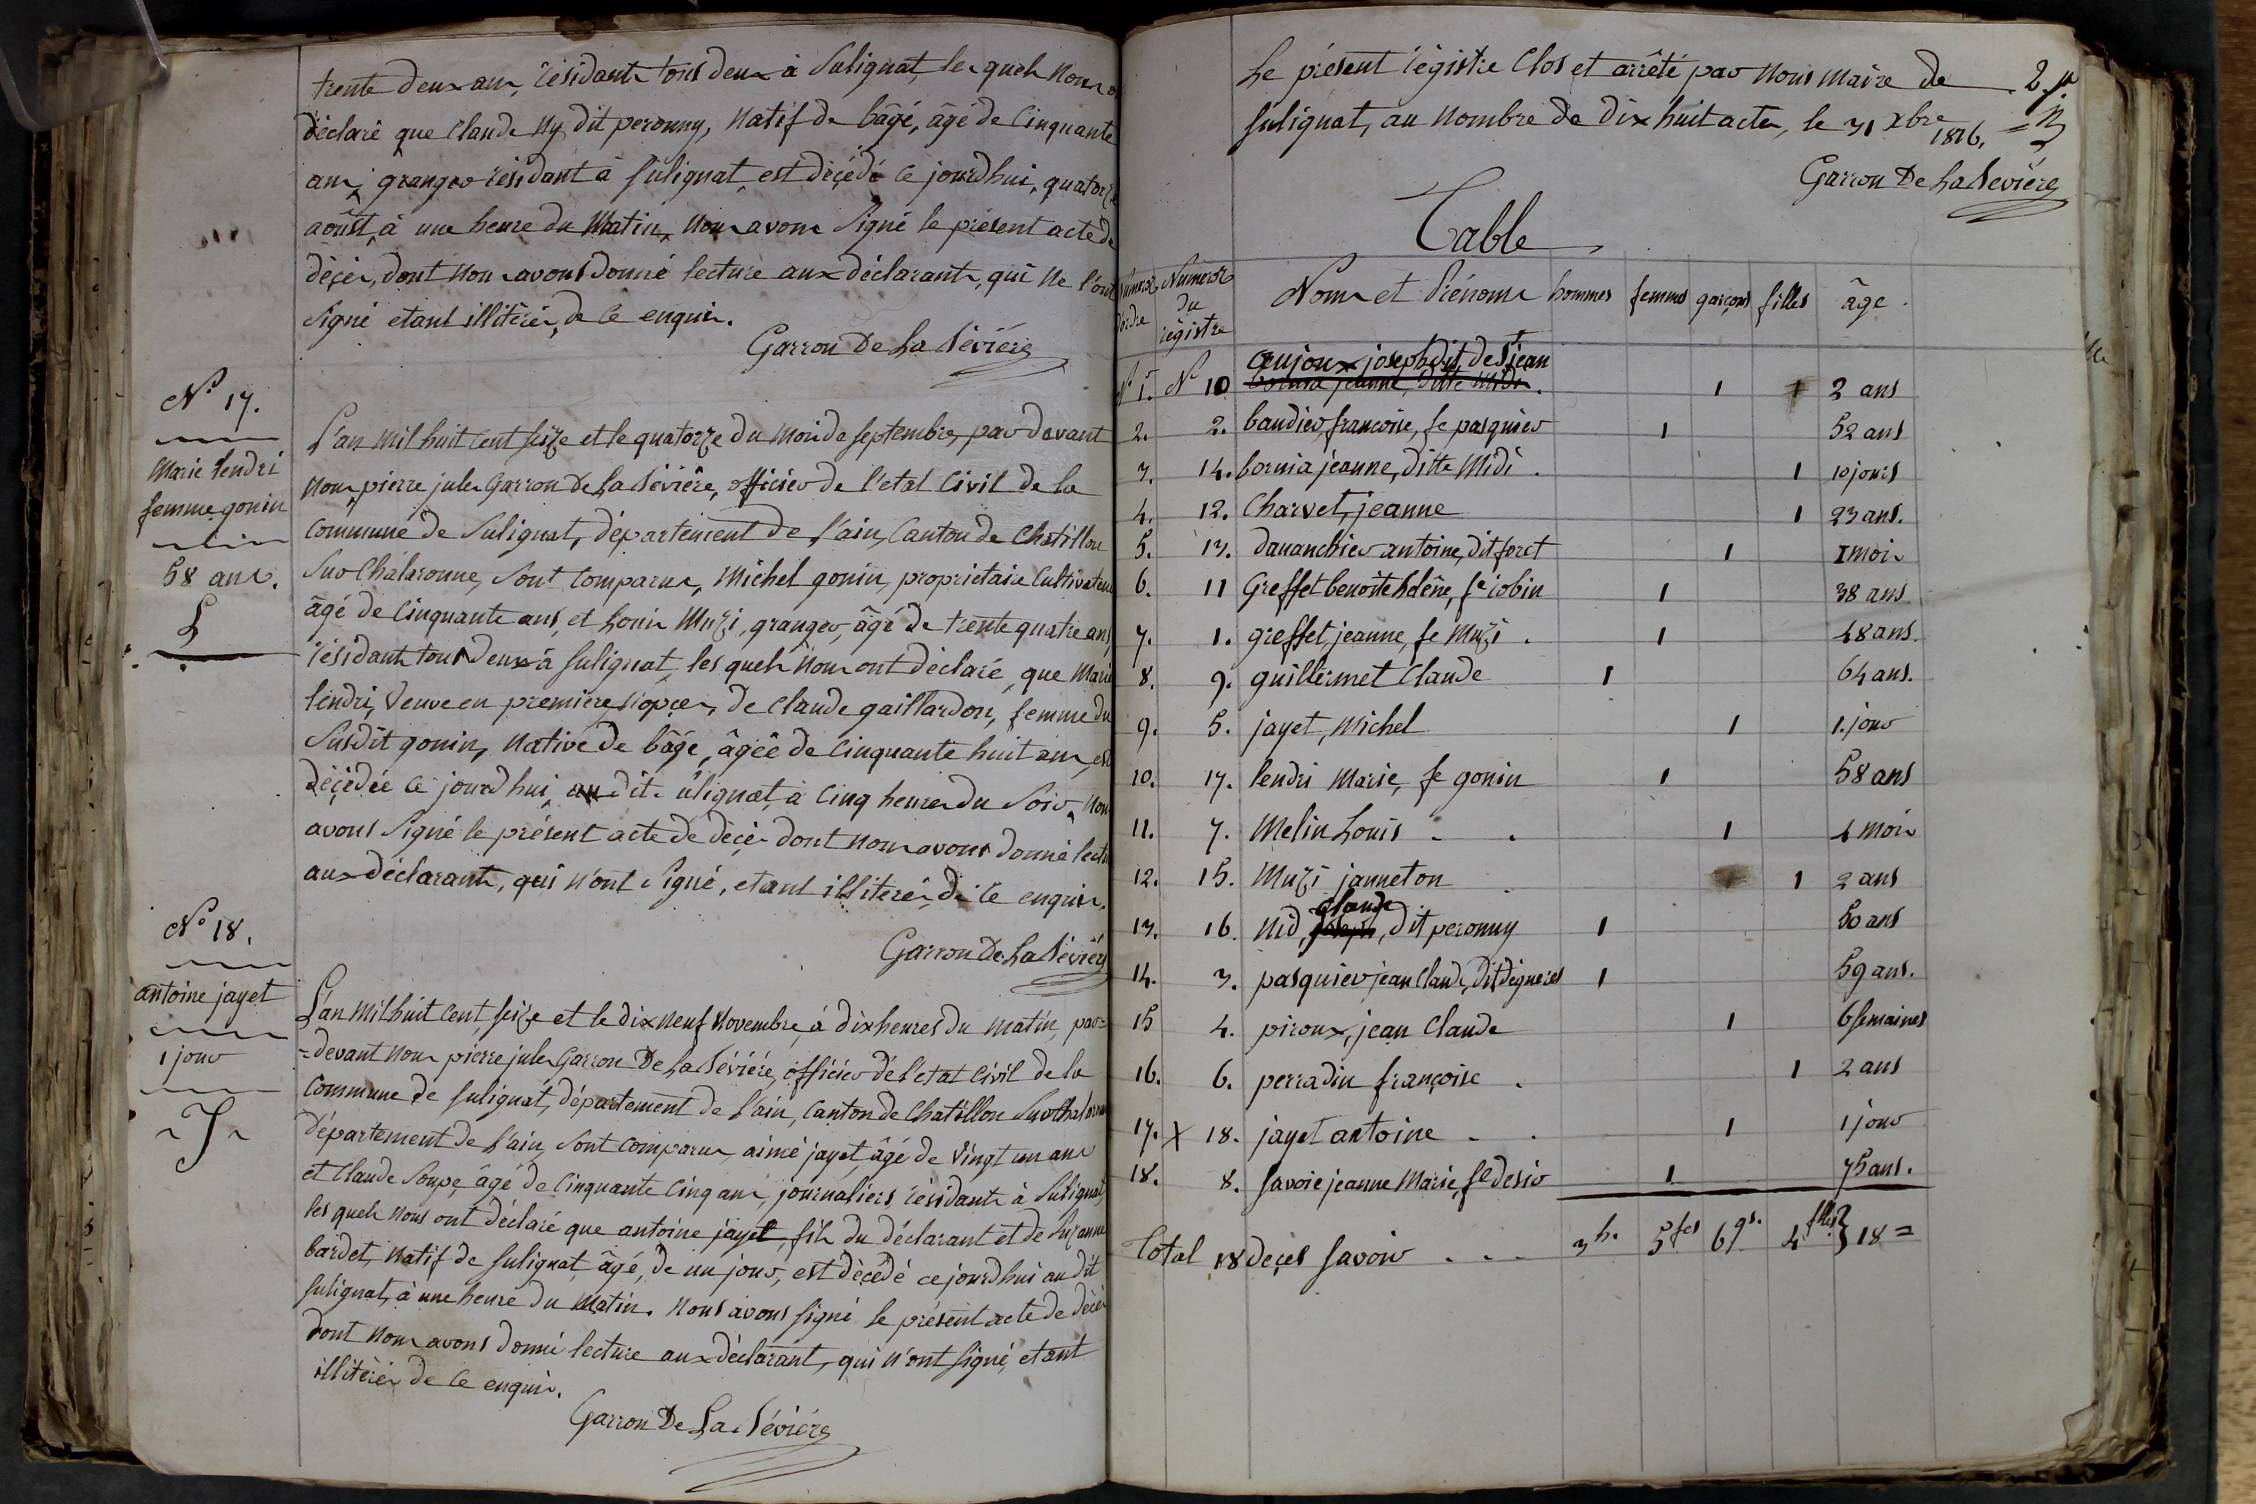 trente deux ans, résidants tous deux à Sulignat, les quels nous o
déclaré que claude Ny dit peronny, natif de bâgé, âgé de Cinquante
ans, granger résidant à Sulignat est décédé ce jourdhui, quatorze
aoûst, à une heure du Matin, nous avons Signé le présent acte de
décès, dont nous avons donné lecture aux déclarants, qui ne l'ont
Signé etant illitérés, de ce enquis.
Garron De La Sévière
N.º 17.
Marie lendri
femme gonin
58 ans.
L
L'an mil huit cent seize et le quatorze du mois de septembre, par devant
nous pierre jules Garron De La Sévière, officier de l'etat Civil de la
Commune de Sulignat, département de l'ain, Canton de Chatillon
Sur Chalaronne, sont comparus, Michel gonin, proprietaire Cultivateur
âgé de cinquante ans, et Louis Muzi, granger, âgé de trente quatre ans,
résidants tous deux à Sulignat, les quels nous ont déclaré, que Marie
lendri, Veuve en premiere nopces, de Claude gaillardon, femme du
Susdit gonin, native de bâgé, âgée de cinquante huit ans, est
décédée ce jourdhui, au dit sulignat, à cinq heures du Soir, nous
avons signé le présent acte de décès dont nous avons donné lectu
aux déclarants, qui n'ont signé, etant illiterés, de ce enquis.
Garron De La Sévière
N.º 18.
antoine jayet
1 jour
J
L'an mil huit cent seize et le dix neuf Novembre, à dix heures du matin, par=
=devant nous pierre jules Garron De La Sévière, officier de l'etat Civil de la
Commune de sulignat, département de l'ain, Canton de Chatillon Sur Chalaronne
Département de l'ain, sont comparus, aimé jayet âgé de Vingt un ans
et Claude Soupe, âgé de cinquante cinq ans, journaliers, résidants à Sulignat,
les quels nous ont déclaré que antoine jayet, fils du déclarant et de Suzanne
bardet, natif de sulignat, âgé, de un jour, est décédé ce jourdhui au dit
sulignat, à une heure du matin. nous avons signé le présent acte de décès
dont nous avons donné lecture aux déclarant, qui n'ont signé, etant
illitérés de ce enquis.
Garron De La Sévière
Le présent régistre Clos et arrêté par nous maire de
sulignat, au nombre de dix huit actes, le 31 xbre 1816.
Garron De La Sévière
Table
Numeros d'ordre Numeros du régistre Noms et Prénoms hommes femmes garçons filles âge.
Craujoux joseph dit de St jean
Nº 1. Nº 10 bornia jeanne, ditte Midi. 1 1 2 ans
2. 2. baudier, francoise, fe pasquier 1 52 ans
3. 14. bornia jeanne, ditte Midi. 1 10 jours
4. 12. Charvet, jeanne 1 23 ans.
5. 13. dananchier antoine, dit foret 1 1 mois
6. 11 Greffet benoite hélène, fe iobin 1 38 ans
7. 1. greffet, jeanne, fe Muzi. 1 48 ans.
8. 9. guillermet Claude 1 64 ans.
9. 5. jayet, Michel 1 1. jour
10. 17. lendri Marie, fe gonin 1 58 ans
11. 7. Melin Louis 1 4 mois
12. 15. Muzi janneton 1 2 ans
13. 16. Nid, claude, dit peronny 1 50 ans
14. 3. pasquier jean Claude, dit degueres 1 59 ans.
15 4. piroux, jean Claude 1 6 semaines
16. 6. perradin françoise. 1 2 ans
17. X 18. jayet antoine 1 1 jour
18. 8. savoie jeanne Marie, fe desir 1 75 ans.
Total 18 deces savoir . . . 3 h. 5 fes 6 gs. 4 flles } 18 =